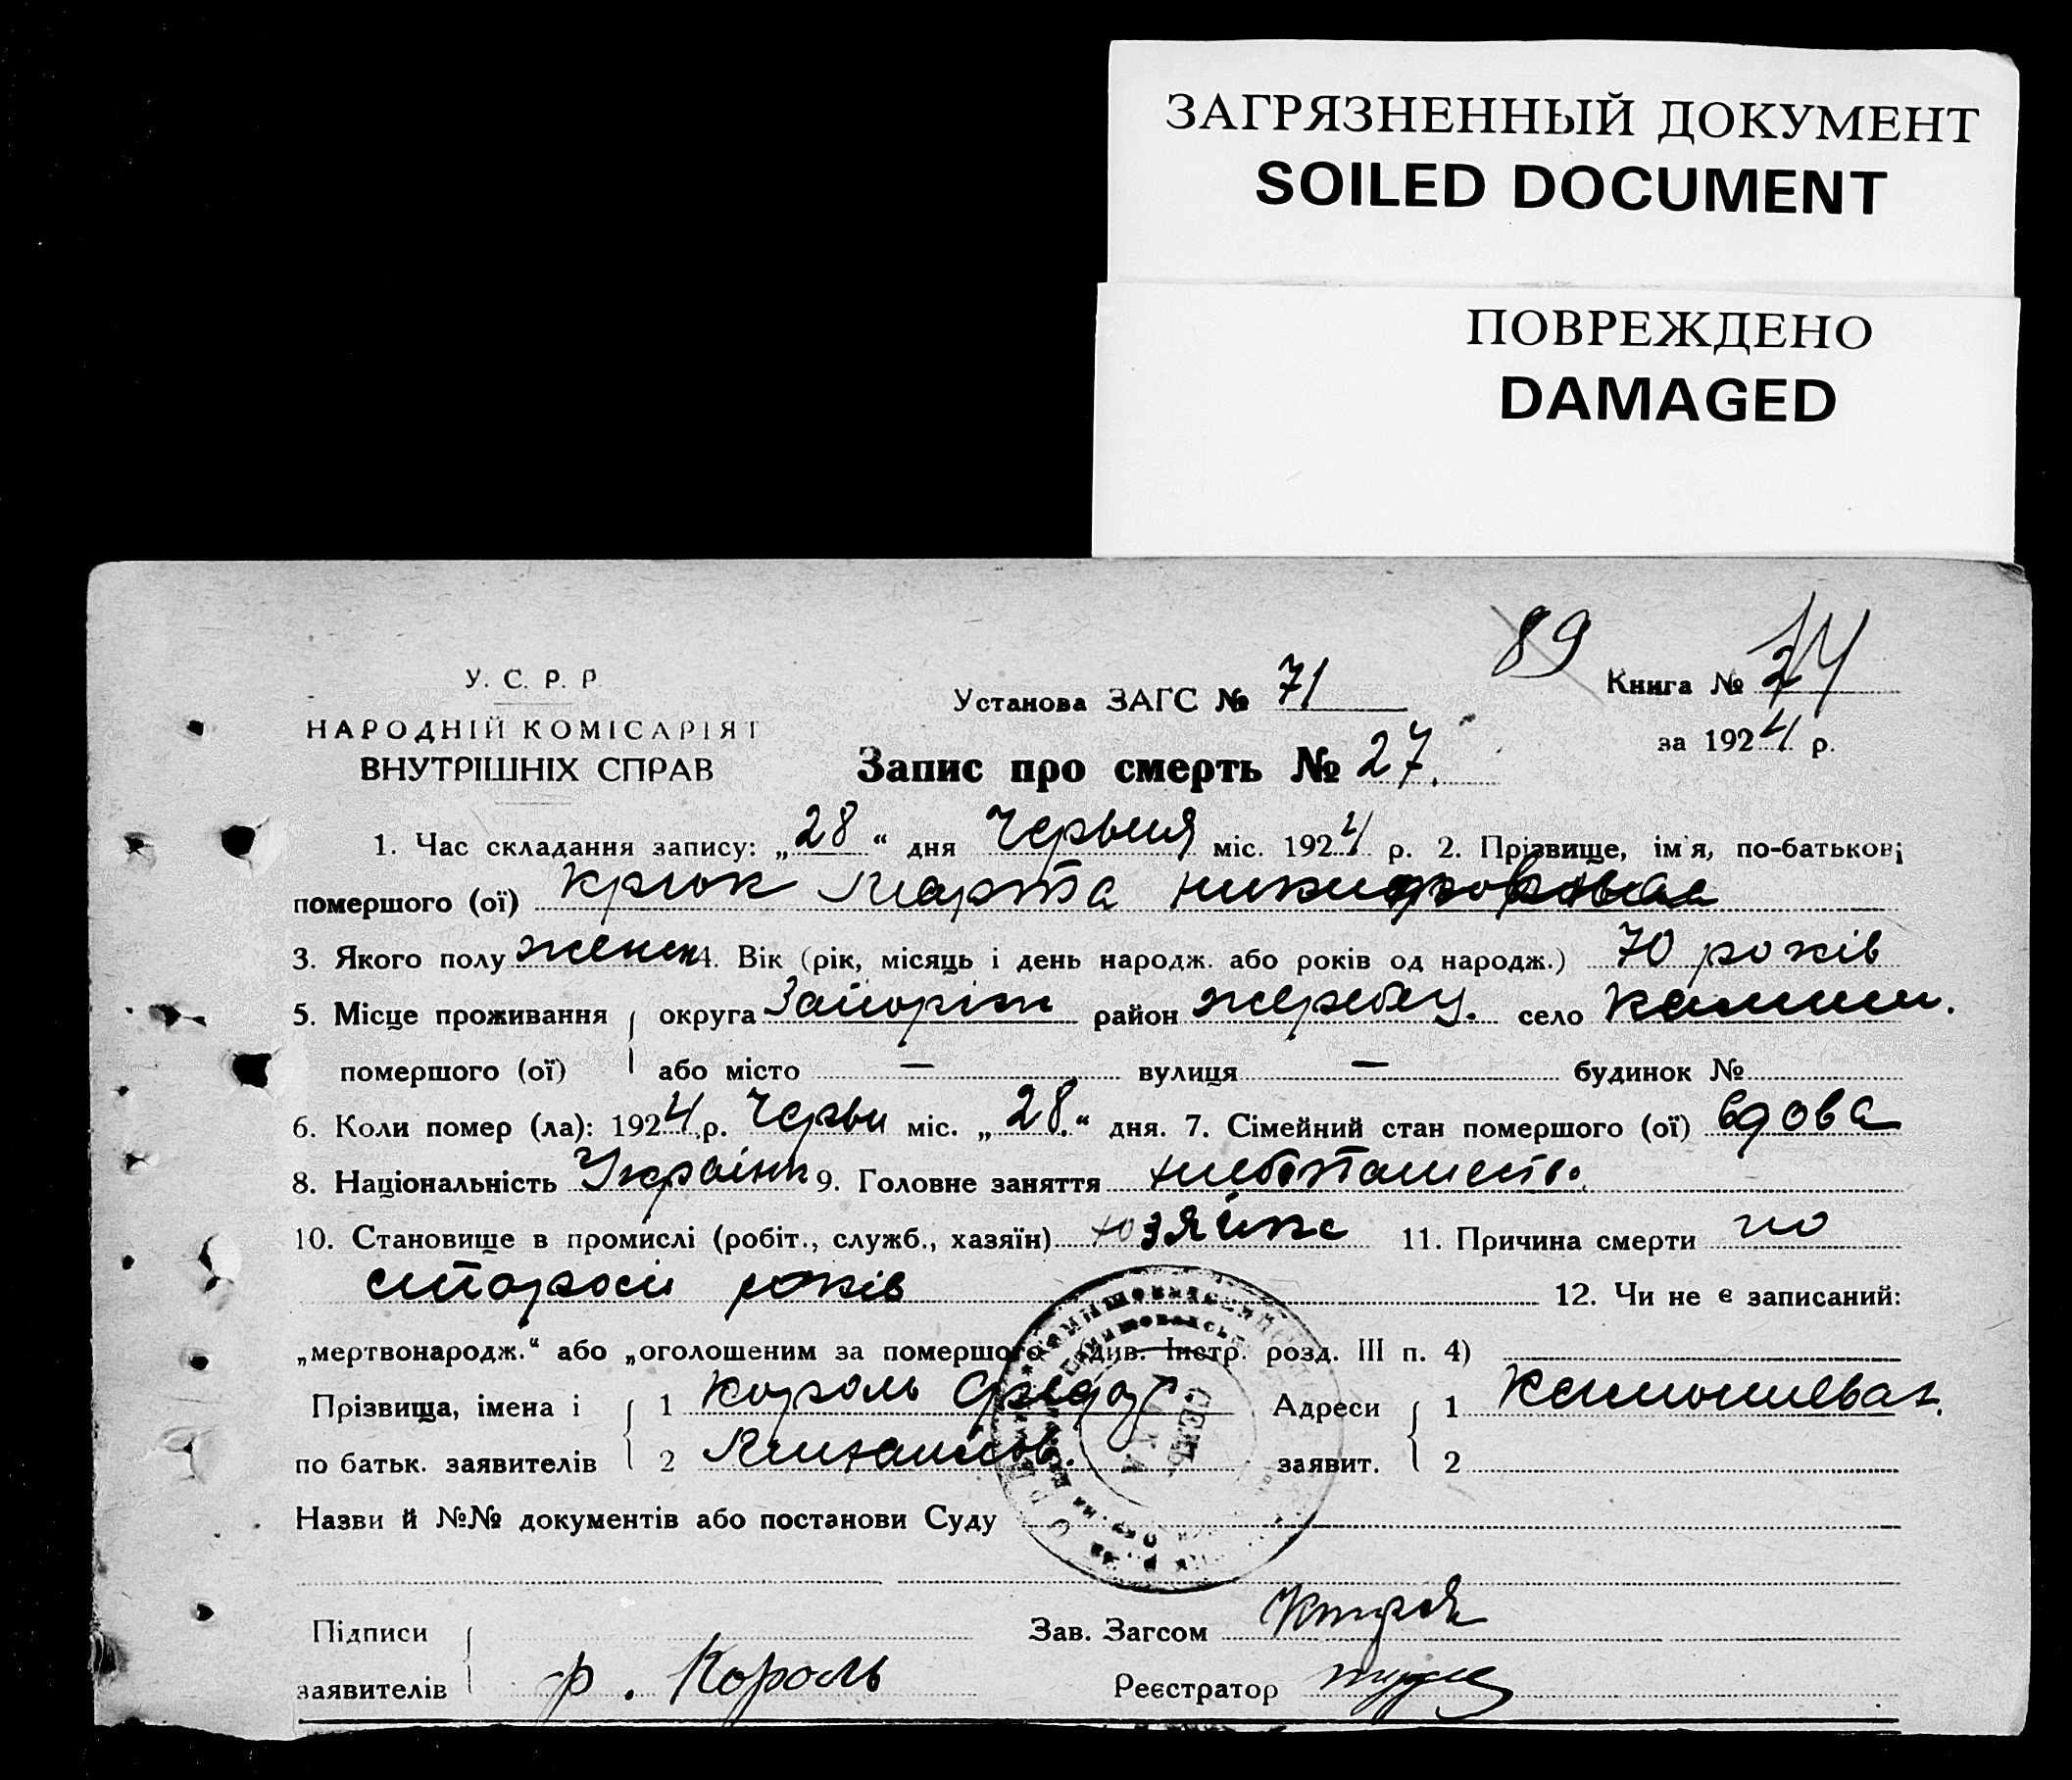 ЗАГРЯЗНЕННЫЙ ДОКУМЕНТ
SOILED DOCUMENT
ПОВРЕЖДЕНО
DAMAGED
89
У. С. Р. Р
НАРОДНІЙ КОМІСАРІЯТ
ВНУТРІШНІХ СПРАВ
Установа ЗАГС № 71
Книга № 74
за 1924 р.
Запис про смерть № 27.
1. Час складання запису: „28“ дня Червня міс. 1924 р. 2. Прізвище, ім'я, по-батькові
помершого (ої) Крюк Марта
3. Якого полу женск 4. Вік (рік, місяць і день народж. або років од народж.) 70 років
5. Місце проживання округа Запоріж район Жеребец. село Камиш.
помершого (ої) або місто — вулиця — будинок №
6. Коли помер (ла): 1924 р. Червн міс. „28.“ дня. 7. Сімейний стан помершого (ої) вдова
8. Національність Українк 9. Головне заняття хлебопашеств.
10. Становище в промислі (робіт., служб., хазяїн) хозяйка 11. Причина смерти по
старосі років 12. Чи не є записаний:
„мертвонародж.“ або „оголошеним за помершого (див. Інстр. розд. III п. 4)
Прізвища, імена і 1 Король Федот Адреси 1 Камишеваха.
по батьк. заявителів 2 Михайлов. заявит. 2
Назви й №№ документів або постанови Суду
Підписи Зав. Загсом
заявителів ф. Король Реєстратор